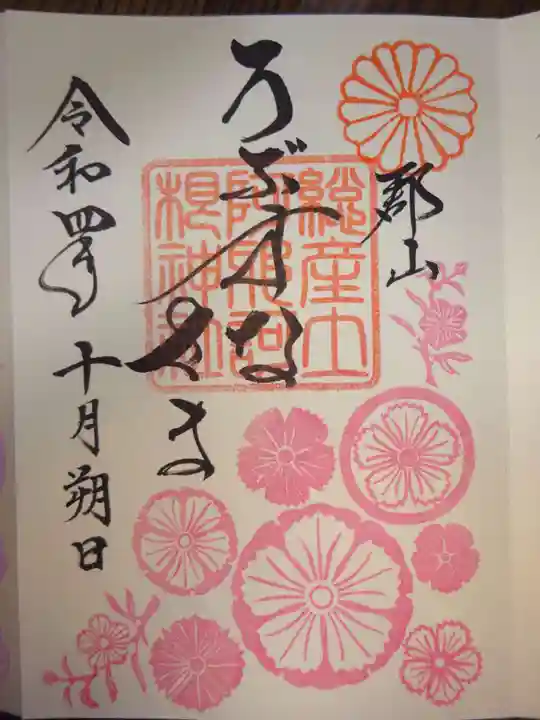 郡山
うぶすな
さま
總産土
阿邪訶
根神社
令和四年十月朔日